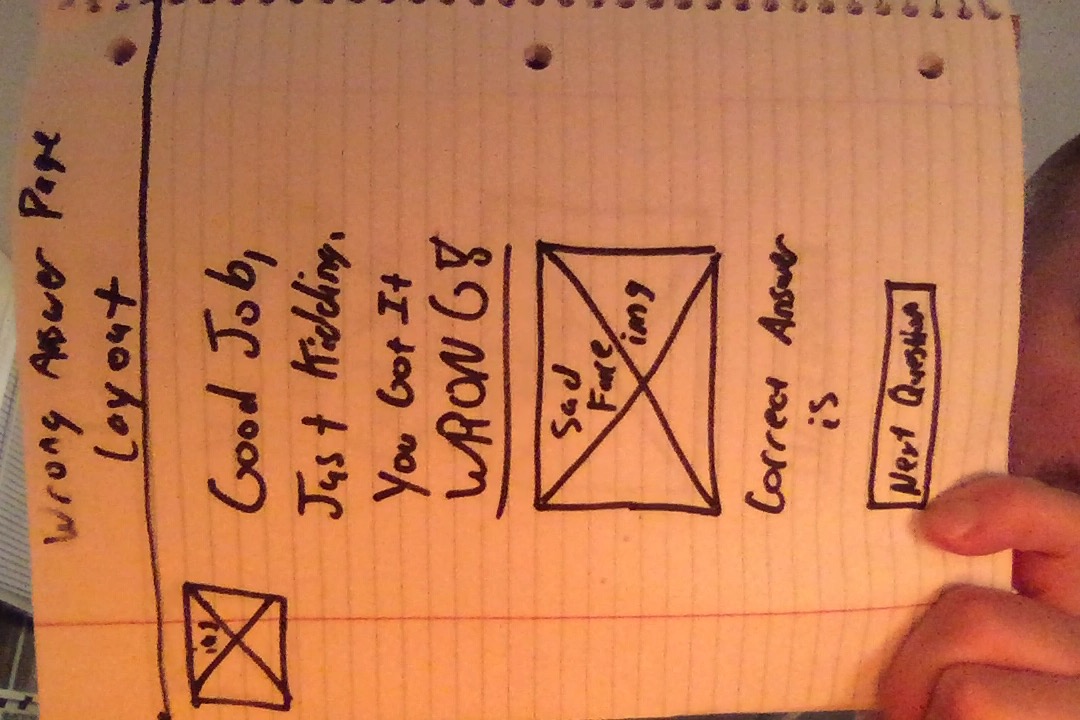 Wrong Answer Page
Layout
img
Good Job,
Just Kidding,
You Got It
WRONG 8
Sad
Face
img
Correct Answer
is
Next Question